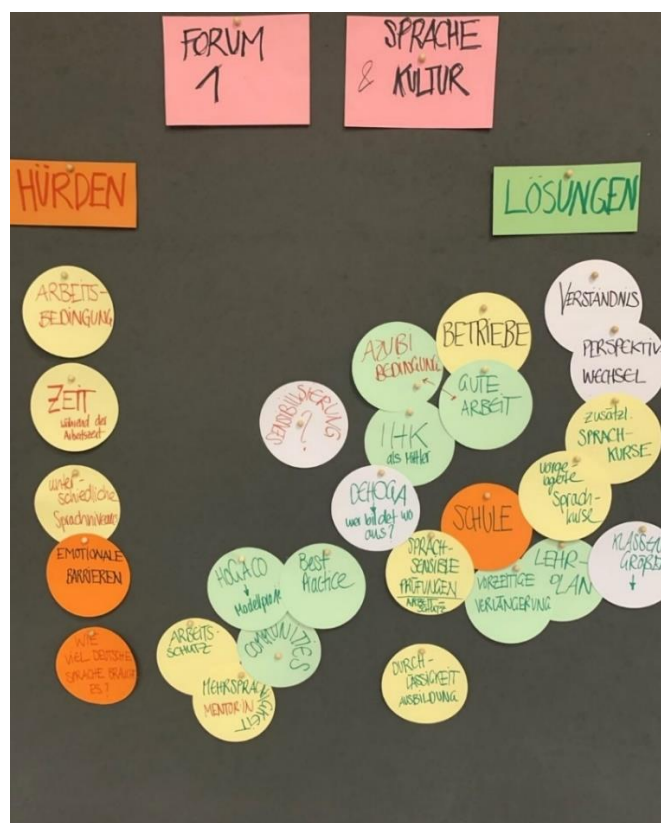 FORUM
1
SPRACHE
& KULTUR
HÜRDEN
LÖSUNGEN
ARBEITS-
BEDINGUNG
ZEIT
während der
Arbeitszeit
unter-
schiedliche
Sprachniveaus
EMOTIONALE
BARRIEREN
WIE
VIEL DEUTSCHE
SPRACHE BRAUCHT
ES?
SENSIBILISIERUNG
?
AZUBI
BEDINGUNG
BETRIEBE
GUTE
ARBEIT
IHK
als Mittler
DEHOGA
wer bildet wo
aus?
VERSTÄNDNIS
PERSPEKTIV
WECHSEL
zusätzl.
SPRACH-
KURSE
vorge
lagerte
Sprach-
kurse
SCHULE
SPRACH-
SENSIBLE
PRÜFUNGEN
ARBEIT
SCHUTZ
VORZEITIGE
VERLÄNGERUNG
LEHR-
PLAN
KLASSEN
GRÖßE
HOGACO
Modellprojekt
Best
Practice
COMMUNITIES
ARBEITS-
SCHUTZ
MEHRSPRACHIGKEIT
MENTOR:IN
DURCH-
LÄSSIGKEIT
AUSBILDUNG